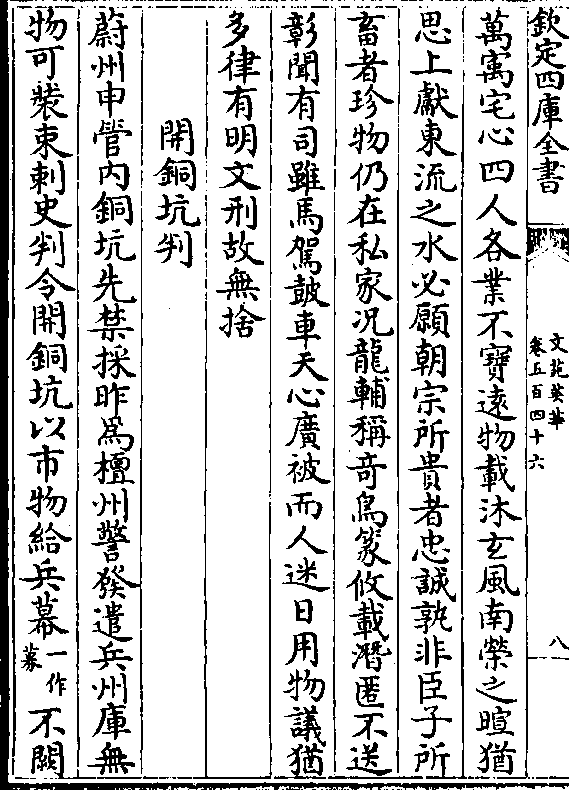 欽定四庫全書
文苑英華
卷五百四十六
八
萬㝢宅心四人各業不寶遠物載沐玄風南榮之暄猶
思上獻東流之水必願朝宗所貴者忠誠孰非臣子所
畜者珍物仍在私家况龍輔稱竒鳥篆攸載潛匿不送
彰聞有司雖馬駕鼓車天心廣被而人迷日用物議猶
多律有明文刑故無捨
開銅坑判
蔚州申管内銅坑先禁採昨為檀州警發遣兵州庫無
物可裝束刺史判令開銅坑以市物給兵幕一作募不闕